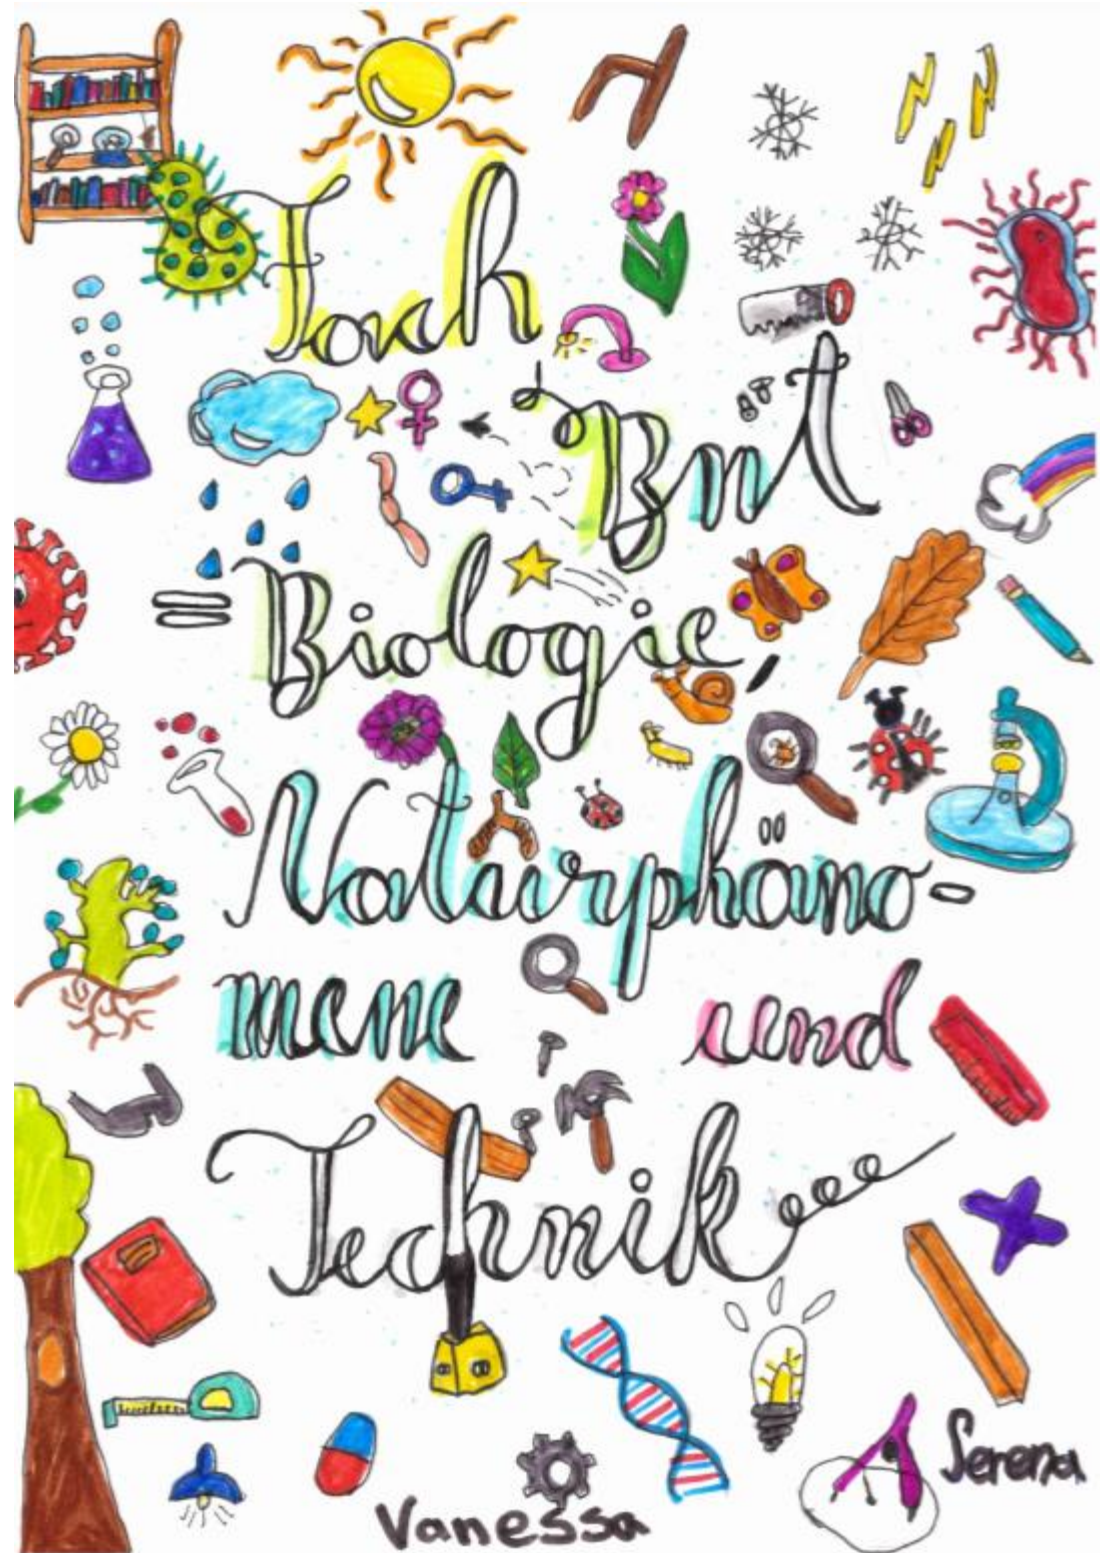 Fach
Bnt
= Biologie,
Naturphäno-
mene und
Technik
Serena
Vanessa